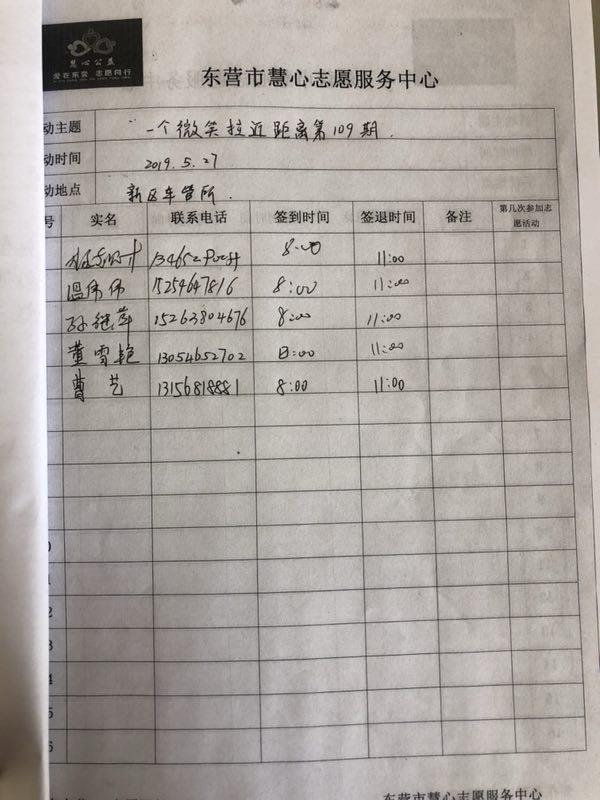 慧心公益
爱在东营 志愿同行
东营市慧心志愿服务中心
动主题 一个微笑拉近距离第109期.
动时间 2019.5.27
动地点 新区车管所.
号 实名 联系电话 签到时间 签退时间 备注 第几次参加志愿活动
8:00 11:00
温伟伟 15254647816 8:00 11:00
孙继萍 15263804676 8:00 11:00
董雪艳 13054652702 8:00 11:00
曹艺 13156818881 8:00 11:00
东营市慧心志愿服务中心